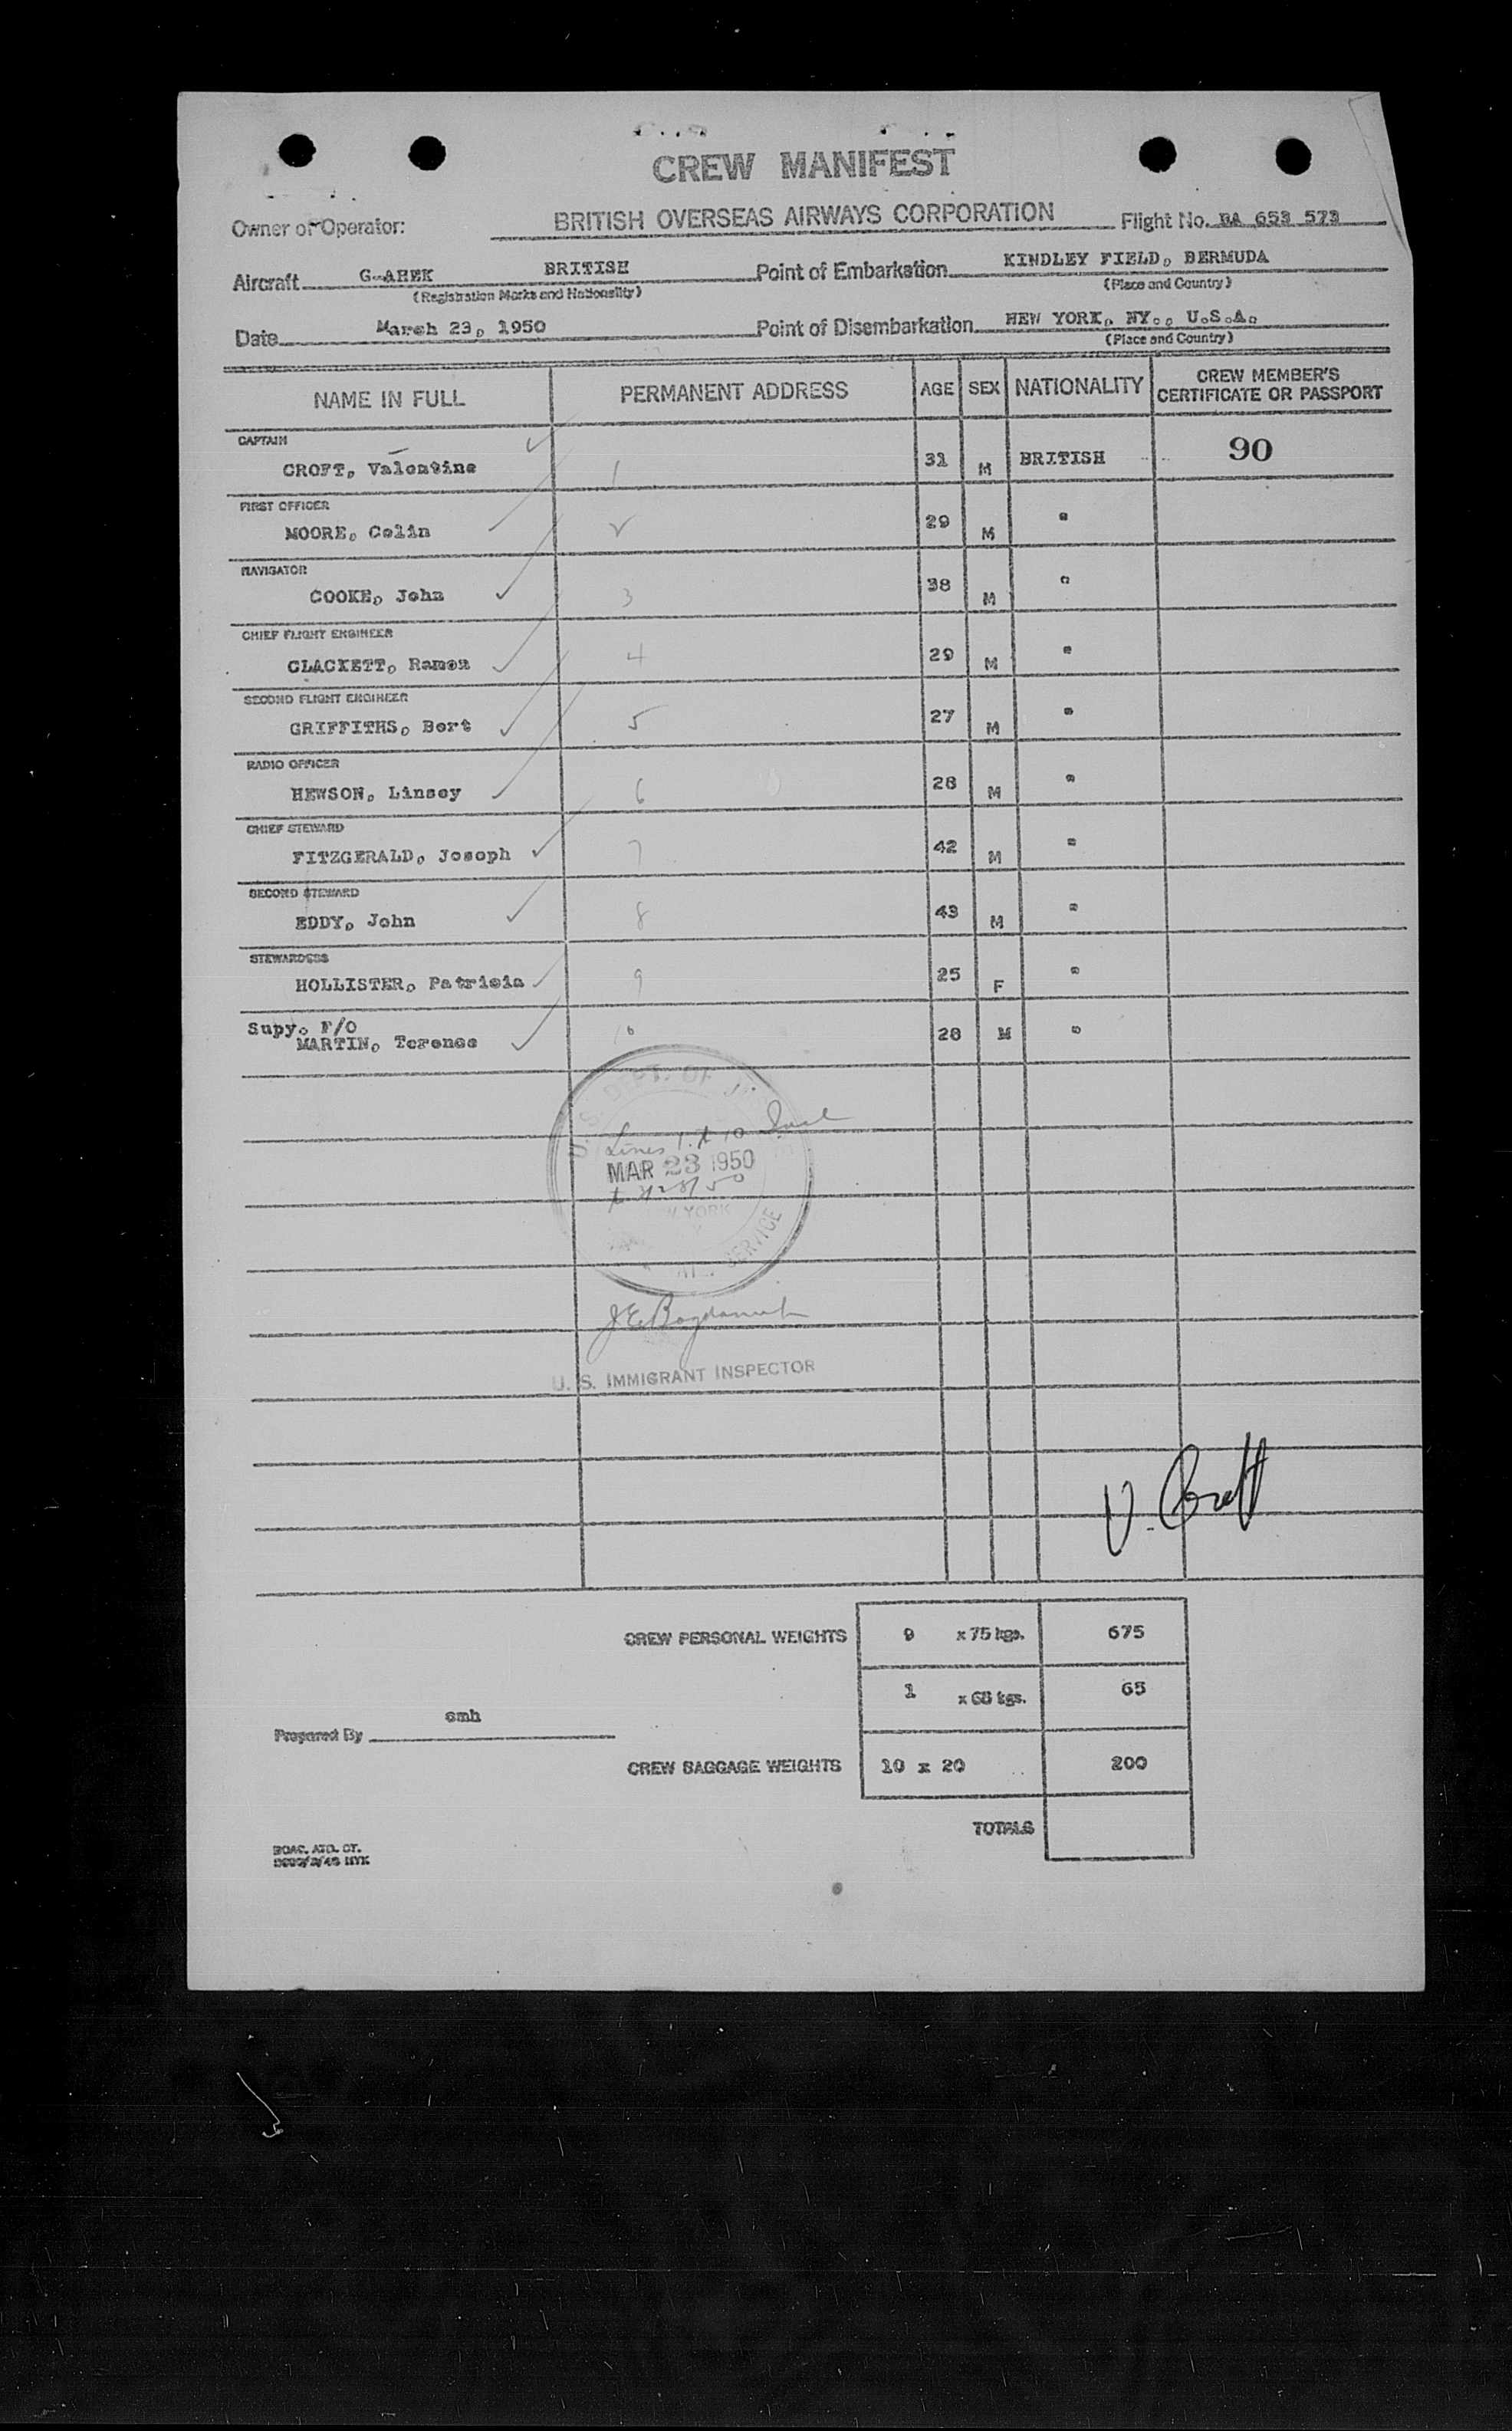 CREW MANIFEST
Owner or Operator: BRITISH OVERSEAS AIRWAYS CORPORATION Flight No. BA 653 573
Aircraft G-AHEK BRITISH Point of Embarkation KINDLEY FIELD, BERMUDA
(Registration Marks and Nationality) (Place and Country)
Date March 23, 1950 Point of Disembarkation NEW YORK, NY., U.S.A.
(Place and Country)
NAME IN FULL PERMANENT ADDRESS AGE SEX NATIONALITY CREW MEMBER'S CERTIFICATE OR PASSPORT
CAPTAIN
CROFT, Valentine 1 31 M BRITISH 90
FIRST OFFICER
MOORE, Colin 2 29 M "
NAVIGATOR
COOKE, John 3 38 M "
CHIEF FLIGHT ENGINEER
CLACKETT, Ramon 4 29 M "
SECOND FLIGHT ENGINEER
GRIFFITHS, Bert 5 27 M "
RADIO OFFICER
HEWSON, Linsey 6 28 M "
CHIEF STEWARD
FITZGERALD, Joseph 7 42 M "
SECOND STEWARD
EDDY, John 8 43 M "
STEWARDESS
HOLLISTER, Patricia 9 25 F "
Supy. F/O
MARTIN, Terence 10 28 M "
U.S. DEPT. OF
Lines 1 to 10
MAR 23 1950
YORK
SERVICE
U. S. IMMIGRANT INSPECTOR
V. Croft
CREW PERSONAL WEIGHTS 9 x 75 kgs. 675
1 x 68 kgs. 65
Prepared By smh
CREW BAGGAGE WEIGHTS 10 x 20 200
TOTALS